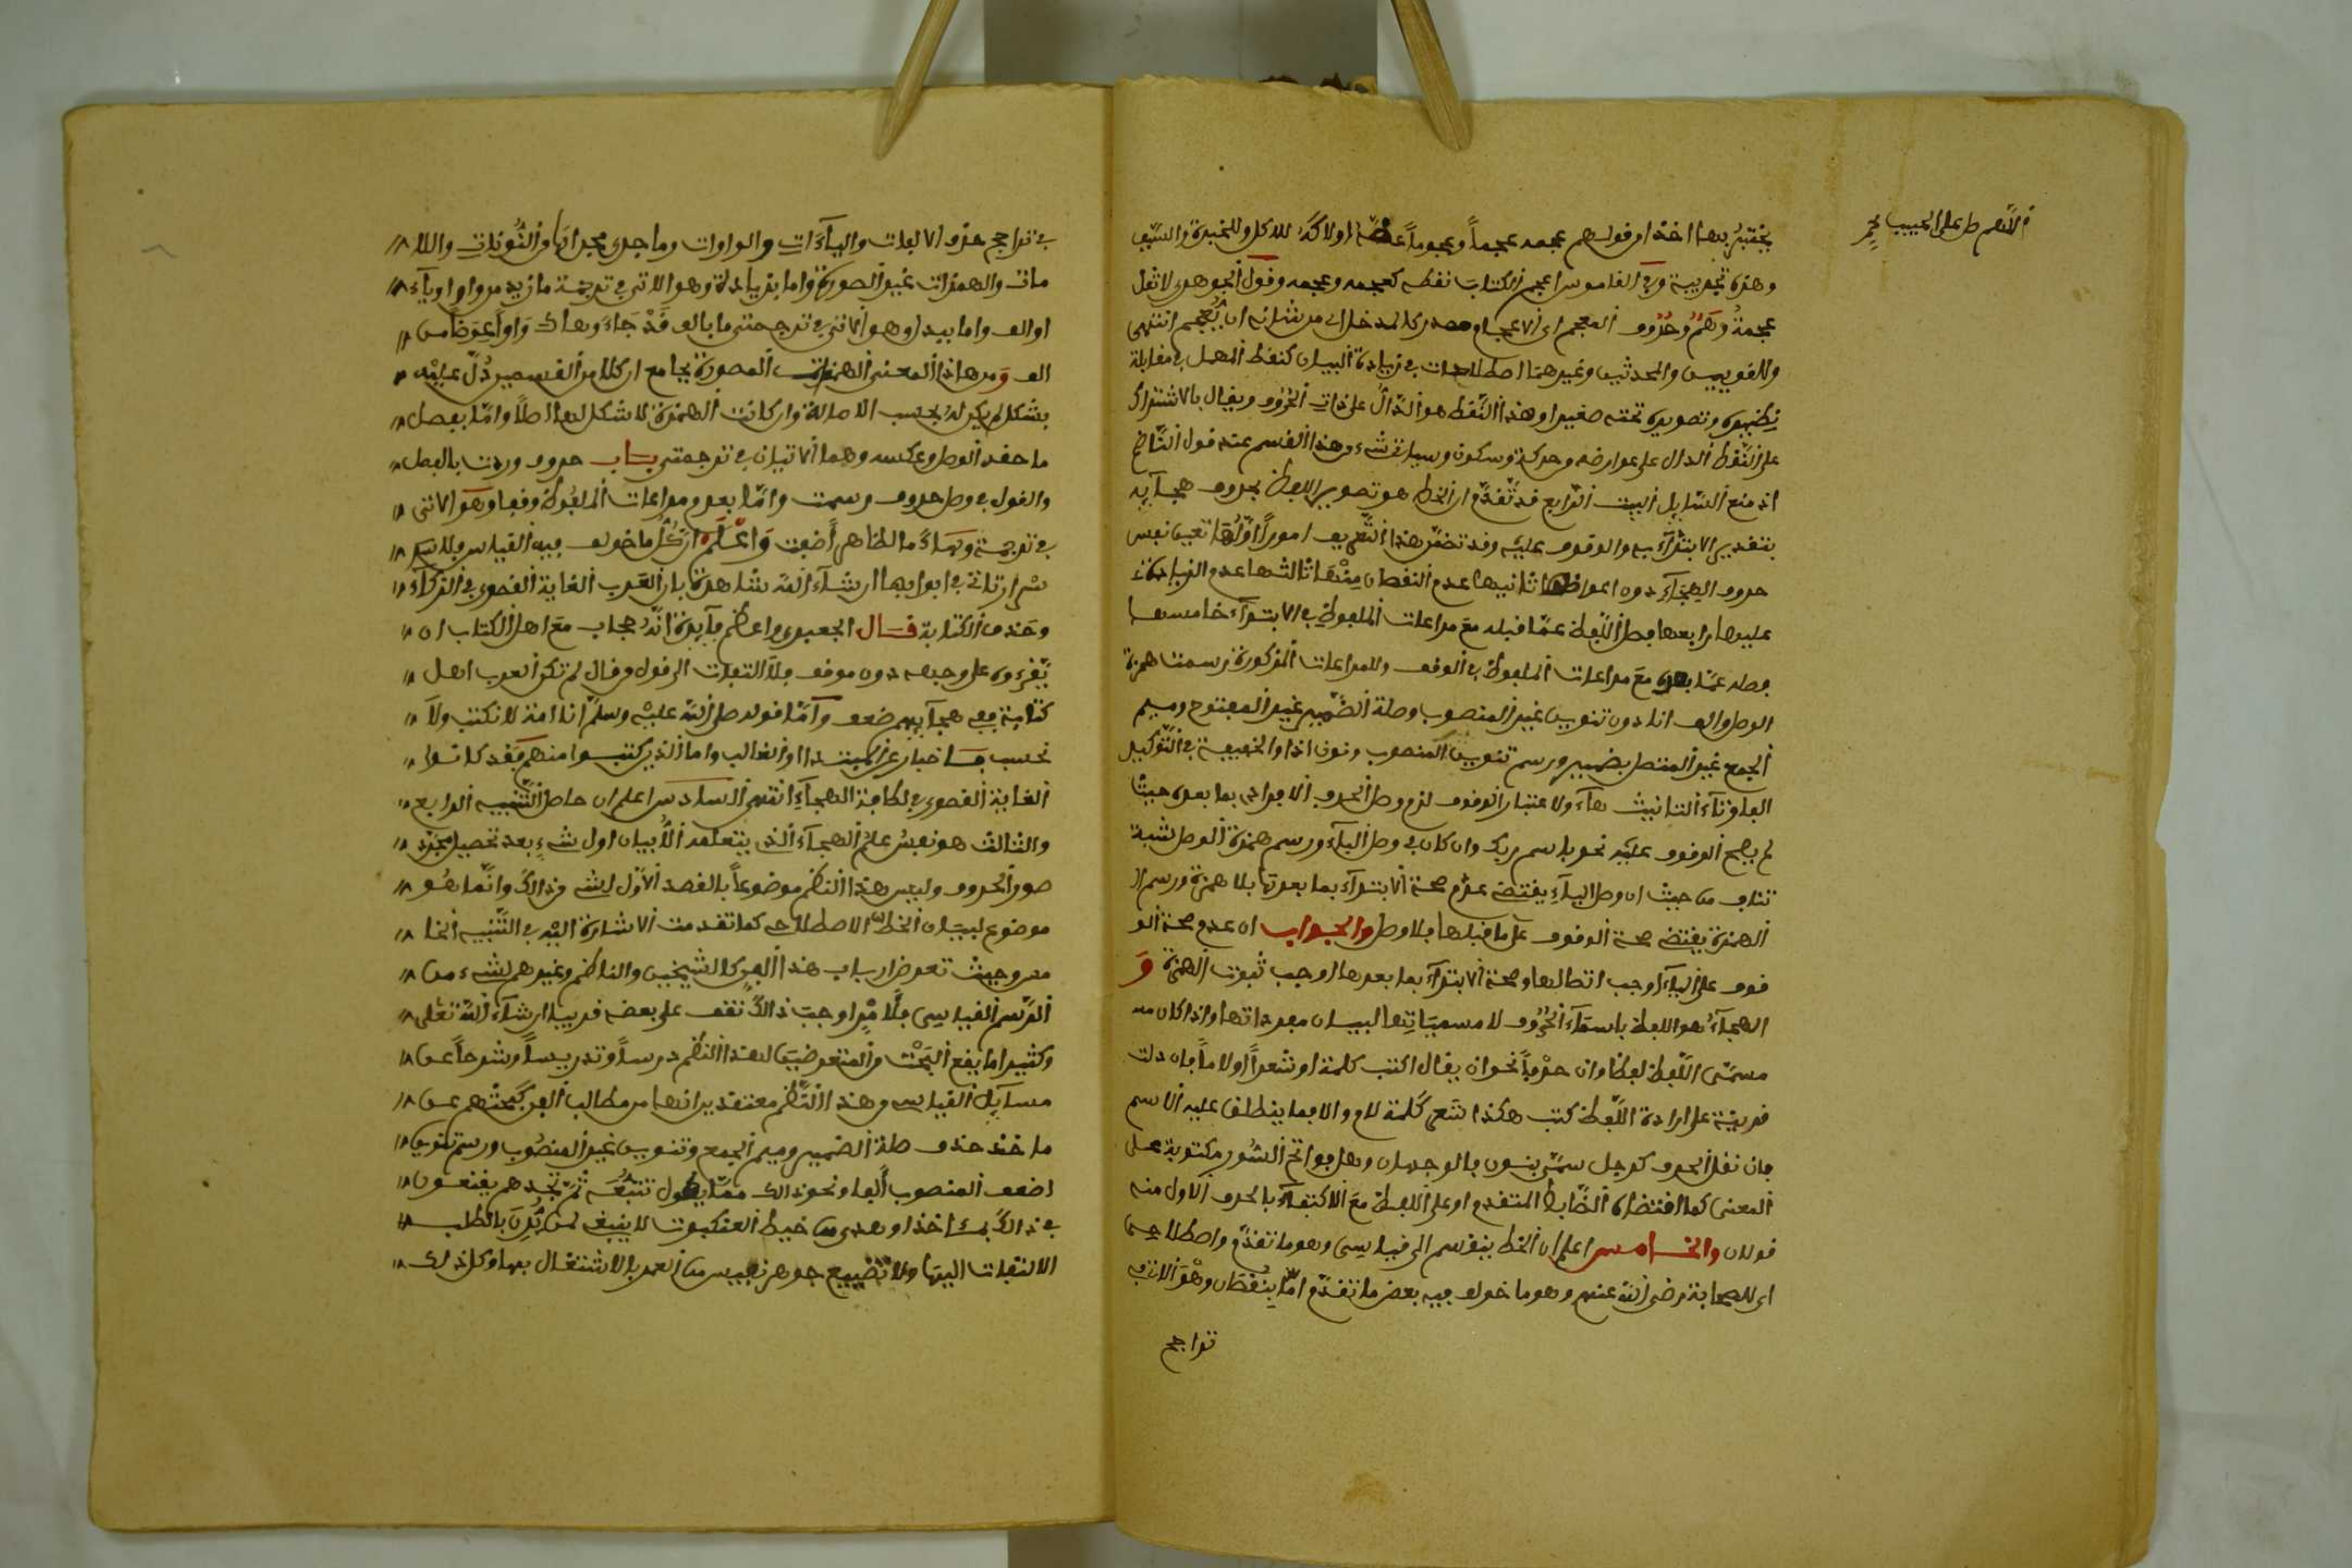 اللهم صل على الحبيب محمد
يختبر بها اخذا من قولهم عجمه عجما وعجوما عضه او لاكه للاكل وللخبرة والسيف
وهزه تجربة وفي القاموس اعجم الكتاب نقطه كعجمه وعجمه وقول الجوهري لا تقل
عجمة وهم وحروف المعجم اي الاعجام مصدر كالمدخل اي من شانه ان يعجم انتهى
وللغويين والمحدثين وغيرهما اصطلاحات في زيادة البيان كنقط المهمل في مقابلة
نظيره وتصويره تحته صغيرا وهذا النقط هو الدال على ذات الحروف ويقال بالاشتراك
على النقط الدال على عوارضه من حركة وسكون وسياتي شيء من هذا القسم عند قول الناظم
اذ منع السايل البيت الرابع قد تقدم ان الخط هو تصوير اللفظ بحروف هجايه
بتقدير الابتداء به والوقوف عليه وقد تضمن هذا التعريف امورا اولها تعيين نفس
حروف الهجاء دون اعواضها ثانيها عدم النقصان منها ثالثها عدم الزيادة
عليها رابعها فصل اللفظ عما قبله مع مراعات الملفوظ في الابتداء خامسها
فصله عما بعده مع مراعات الملفوظ في الوقف وللمراعات المذكورة رسمت همزة
الوصل والف انا دون تنوين غير المنصوب وصلة الضمير غير المفتوح وميم
الجمع غير المتصل بضمير ورسم تنوين المنصوب ونون اذا والخفيفة في التوكيد
الفا وتاء التانيث هاء ولاعتبار الوقوف لزم وصل الحروف الافرادي بما بعده حيث
لم يصح الوقوف عليه نحو باسم ربك وان كان في وصل الباء ورسم همزة الوصل شبه
تناف من حيث ان وصل الباء يقتضي عدم صحة الابتداء بما بعدها بلا همزة ورسم
الهمزة يقتضي صحة الوقوف على ما قبلها بلا وصل والجواب ان عدم صحة الو
قوف على الباء اوجب اتصالها وصحة الابتداء بما بعدها اوجب ثبوت الهمزة و
الهجاء هو اللفظ باسماء الحروف لا مسمياتها لبيان مفرداتها واذا كان
مسمى اللفظ لفظا وان حرفا نحو ان يقال اكتب كلمة او شعرا او لاما فان دلت
قرينة على ارادة اللفظ كتب هكذا شعر كلمة لام والا فما ينطلق عليه الاسم
فان نقل الحرف كرجل سمي بنون فالوجهان وهل فواتح السور مكتوبة على
المعنى كما اقتضاه الضابط المتقدم او على اللفظ مع الاكتفاء بالحرف الاول منه
قولان والخامس اعلم ان الخط ينقسم الى قياسي وهو ما تقدم واصطلاحي
اي للصحابة رضي الله عنهم وهو ما خولف فيه بعض ما تقدم اما بنقصان وهو الاتي
تراجم
في تراجم حذف الالفات والياءات والواوات وما جرى مجراها من النونات واللا
مات والهمزات غير الصورة واما بزيادة وهو الاتي في ترجمة ما زيد من واو او ياء
او الف واما ببدل وهو الاتي في ترجمتي ما بالف قد جاء وهاك واوا عوضا من
الف ومن هذا المعنى الهمزات المصورة بجامع ان كلا من القسمين دل عليه
بشكل لم يكن له بحسب الاصالة وان كانت الهمزة لا شكل لها اصلا واما بفصل
ما حقه الوصل وعكسه وهما الاتيان في ترجمتي باب حروف وردت بالفصل
والقول في وصل حروف رسمت واما بعدم مراعات الملفوظ وقفا وهو الاتي
في ترجمة وهاك ما لظاهر أضفت واعلم ان كل ما خولف فيه القياس فلاسـ
سرار تاتي في ابوابها ان شاء الله شاهدة بان للعرب الغاية القصوى في الذكاء
وحذق الكتابة قال الجعبري واعظم فايدة انه حجاب مع اهل الكتاب ان
يقرءوه على وجهه دون موقف ولا التفات الى قول من قال لم تكن العرب اهل
كتابة ففي هجايهم ضعف واما قوله صلى الله عليه وسلم انا امة لا نكتب ولا
نحسب فاخبار عن المبتدا او الغالب واما الذين كتبوا منهم فقد كانوا
الغاية القصوى في لطافة الهجاء انتهى السادس اعلم ان حاصل التنبيه الرابع
والثالث هو نفس علم الهجاء الذي يتعلمه الصبيان اول شيء بعد تحصيل مجرد
صور الحروف وليس هذا النظم موضوعا بالقصد الاول لشيء من ذالك وانما هو
موضوع لبيان الخط الاصطلاحي كما تقدمت الاشارة اليه في التنبيه الخا
مس وحيث تعرض ارباب هذا الفن كالشيخين والناظم وغيرهم لشيء من
الرسم القياسي فلامر اوجب ذالك تقف على بعضه قريبا ان شاء الله تعلى
وكثيرا ما يقع البحث من المتعرضين لهذا النظم درسا وتدريسا وشرحا عن
مسايل القياس من هذا النظم معتقدين انها من مطالب الفن كبحثهم عن
ماخذ حذف صلة الضمير وميم الجمع وتنوين غير المنصوب ورسم تنوين
اضعف المنصوب ألفا ونحو ذالك مما يطول تتبعه ثم تجدهم يقنعون
في ذالك بماخذ اوهى من خيط العنكبوت لا ينبغي لمن بالطلب
الالتفات اليها ولا تضييع جوهر نفيس من العمر بالاشتغال بها وكل ذلك